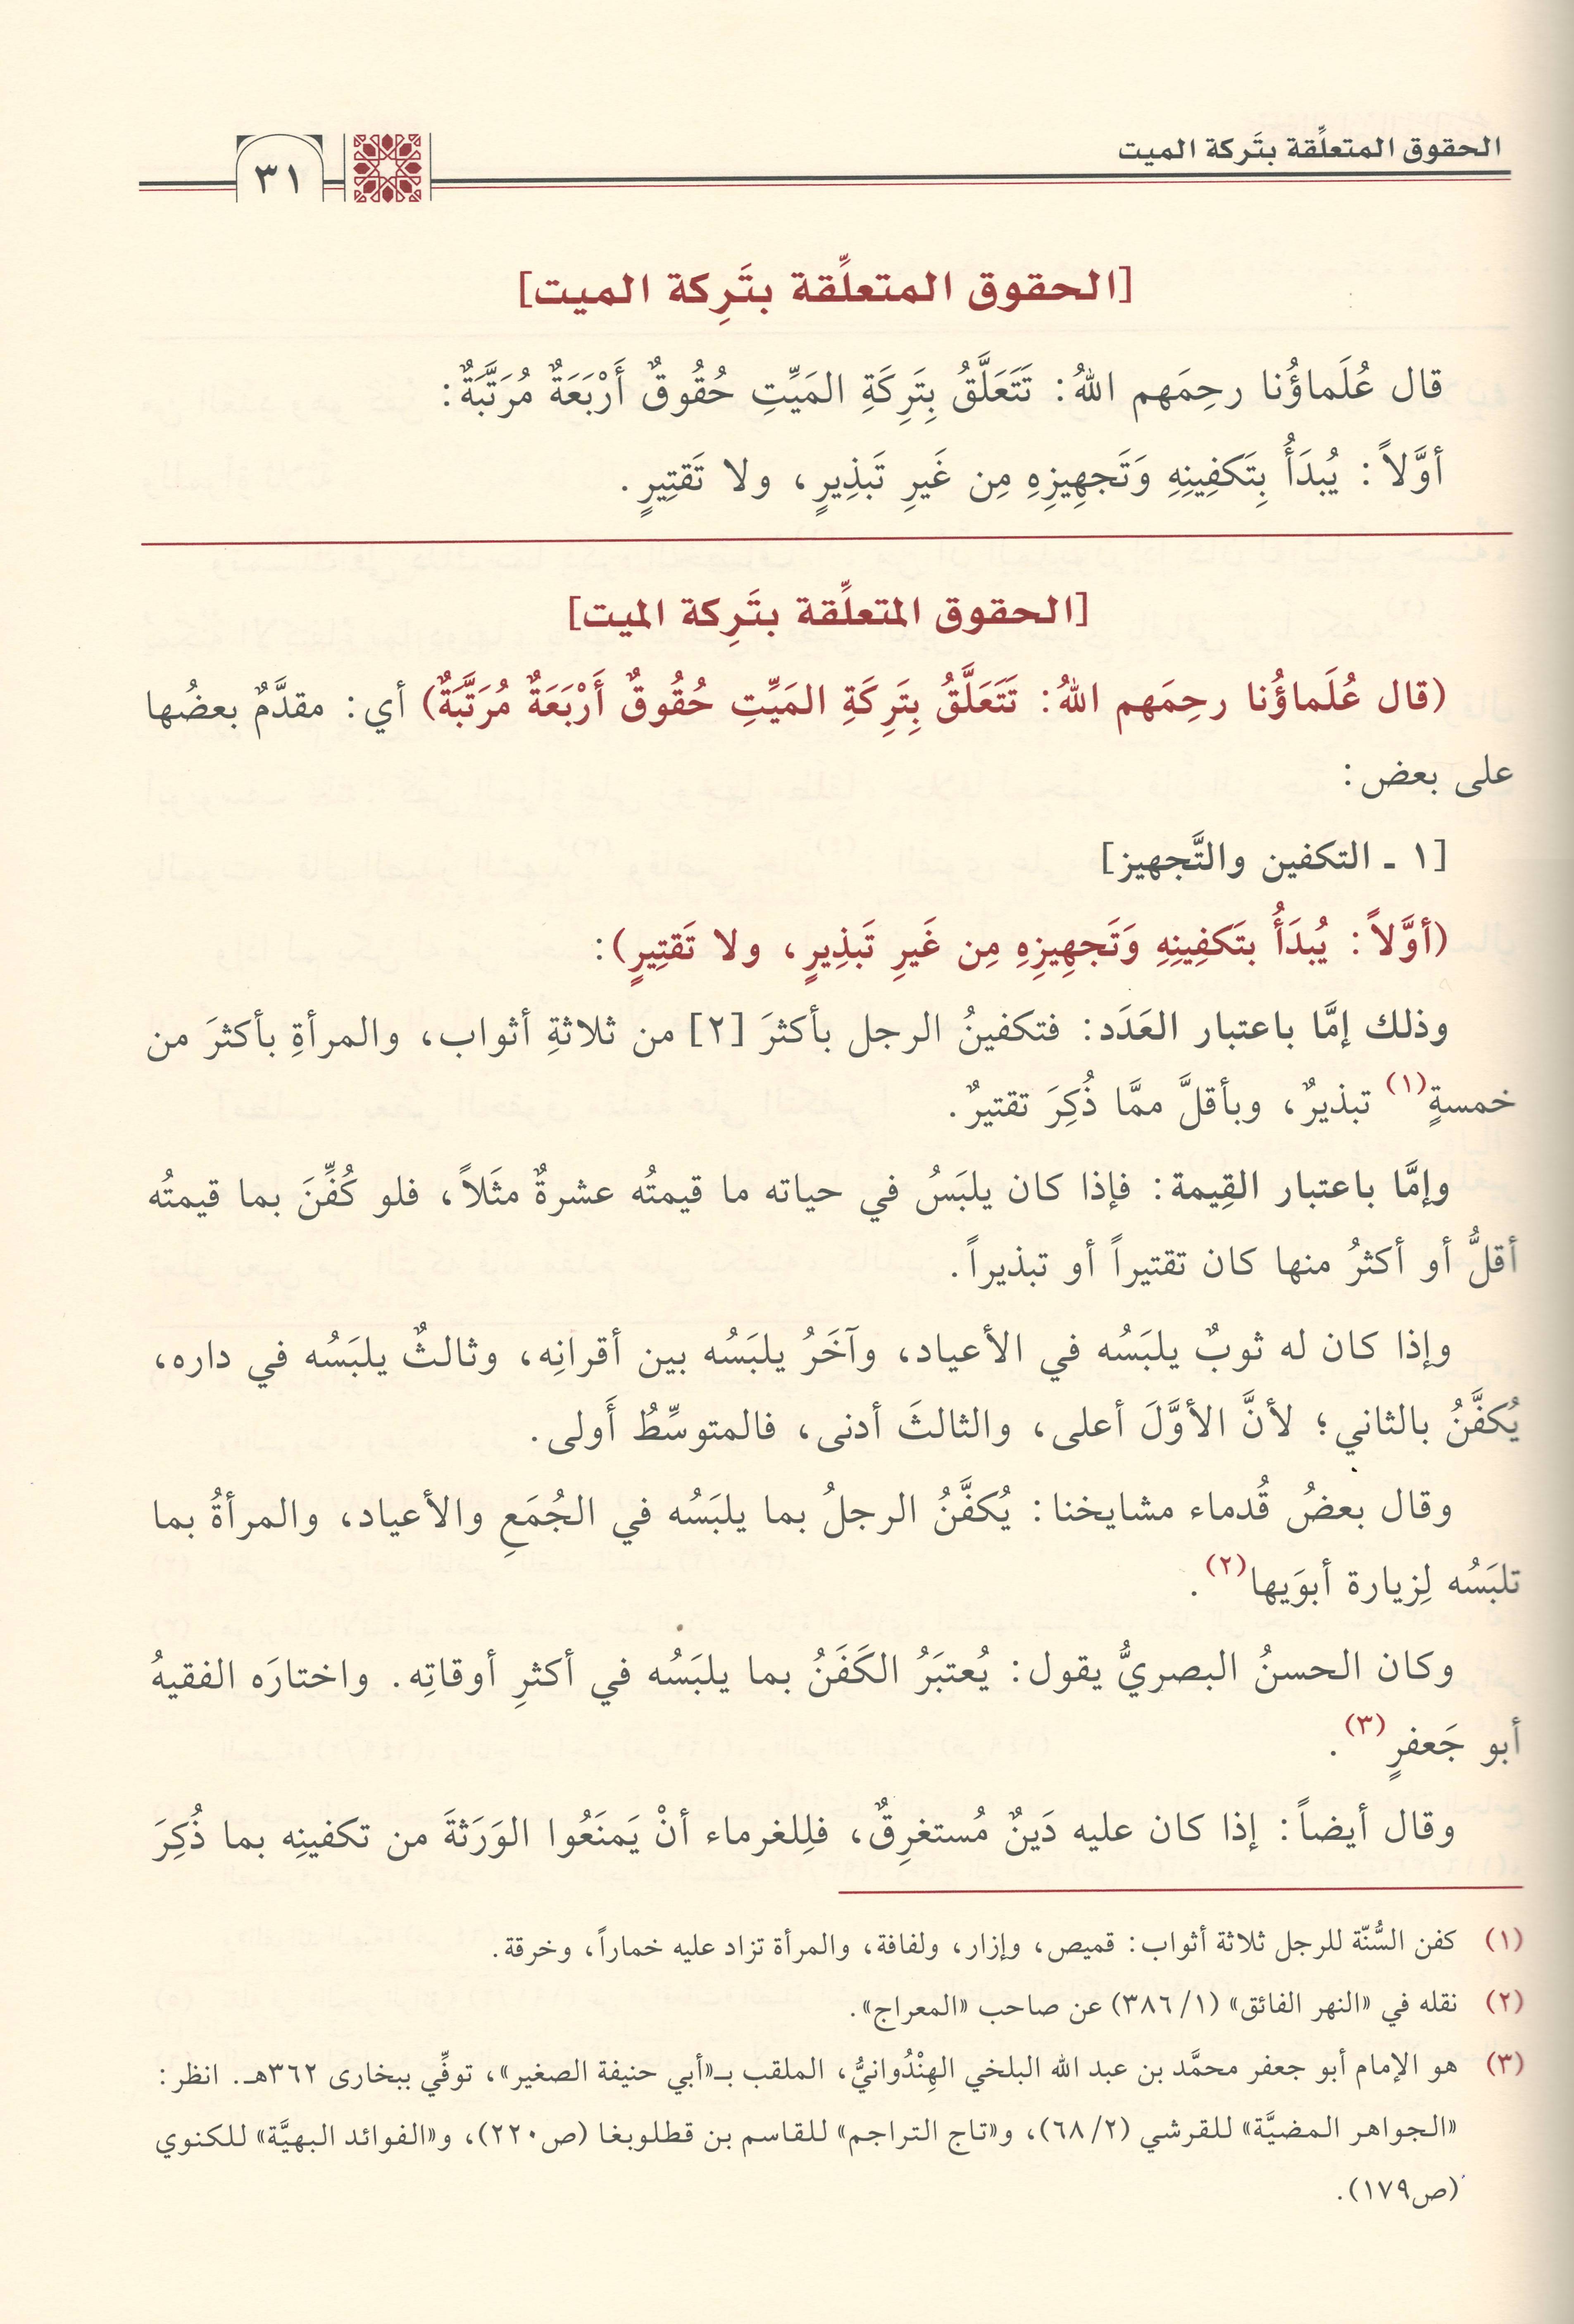 الحقوق المتعلِّقة بتَركة الميت
٣١
[الحقوق المتعلِّقة بتَرِكة الميت]
قال عُلَماؤُنا رحِمَهم اللهُ: تَتَعَلَّقُ بِتَرِكَةِ المَيِّتِ حُقُوقٌ أَرْبَعَةٌ مُرَتَّبَةٌ:
أوَّلاً: يُبدَأُ بِتَكفِينِهِ وَتَجهِيزِهِ مِن غَيرِ تَبذِيرٍ، ولا تَقتِيرٍ.
[الحقوق المتعلِّقة بتَرِكة الميت]
(قال عُلَماؤُنا رحِمَهم اللهُ: تَتَعَلَّقُ بِتَرِكَةِ المَيِّتِ حُقُوقٌ أَرْبَعَةٌ مُرَتَّبَةٌ) أي: مقدَّمٌ بعضُها
على بعض:
[١ ـ التكفين والتَّجهيز]
(أوَّلاً: يُبدَأُ بتَكفِينِهِ وَتَجهِيزِهِ مِن غَيرِ تَبذِيرٍ، ولا تَقتِيرٍ):
وذلك إمَّا باعتبار العَدَد: فتكفينُ الرجل بأكثرَ [٢] من ثلاثةِ أثواب، والمرأةِ بأكثرَ من
خمسةٍ(١) تبذيرٌ، وبأقلَّ ممَّا ذُكِرَ تقتيرٌ.
وإمَّا باعتبار القِيمة: فإذا كان يلبَسُ في حياته ما قيمتُه عشرةٌ مثَلاً، فلو كُفِّنَ بما قيمتُه
أقلُّ أو أكثرُ منها كان تقتيراً أو تبذيراً.
وإذا كان له ثوبٌ يلبَسُه في الأعياد، وآخَرُ يلبَسُه بين أقرانِه، وثالثٌ يلبَسُه في داره،
يُكفَّنُ بالثاني؛ لأنَّ الأوَّلَ أعلى، والثالثَ أدنى، فالمتوسِّطُ أَولى.
وقال بعضُ قُدماء مشايخنا: يُكفَّنُ الرجلُ بما يلبَسُه في الجُمَعِ والأعياد، والمرأةُ بما
تلبَسُه لِزيارة أبوَيها(٢).
وكان الحسنُ البصريُّ يقول: يُعتبَرُ الكَفَنُ بما يلبَسُه في أكثرِ أوقاتِه. واختارَه الفقيهُ
أبو جَعفرٍ(٣).
وقال أيضاً: إذا كان عليه دَينٌ مُستغرِقٌ، فلِلغرماء أنْ يَمنَعُوا الوَرَثةَ من تكفينِه بما ذُكِرَ
(١) كفن السُّنّة للرجل ثلاثة أثواب: قميص، وإزار، ولفافة، والمرأة تزاد عليه خماراً، وخرقة.
(٢) نقله في «النهر الفائق» (١/ ٣٨٦) عن صاحب «المعراج».
(٣) هو الإمام أبو جعفر محمَّد بن عبد الله البلخي الهِنْدُوانيُّ، الملقب بـ«أبي حنيفة الصغير»، توفِّي ببخارى ٣٦٢هـ. انظر:
«الجواهر المضيَّة» للقرشي (٢/ ٦٨)، و«تاج التراجم» للقاسم بن قطلوبغا (ص٢٢٠)، و«الفوائد البهيَّة» للكنوي
(ص١٧٩).